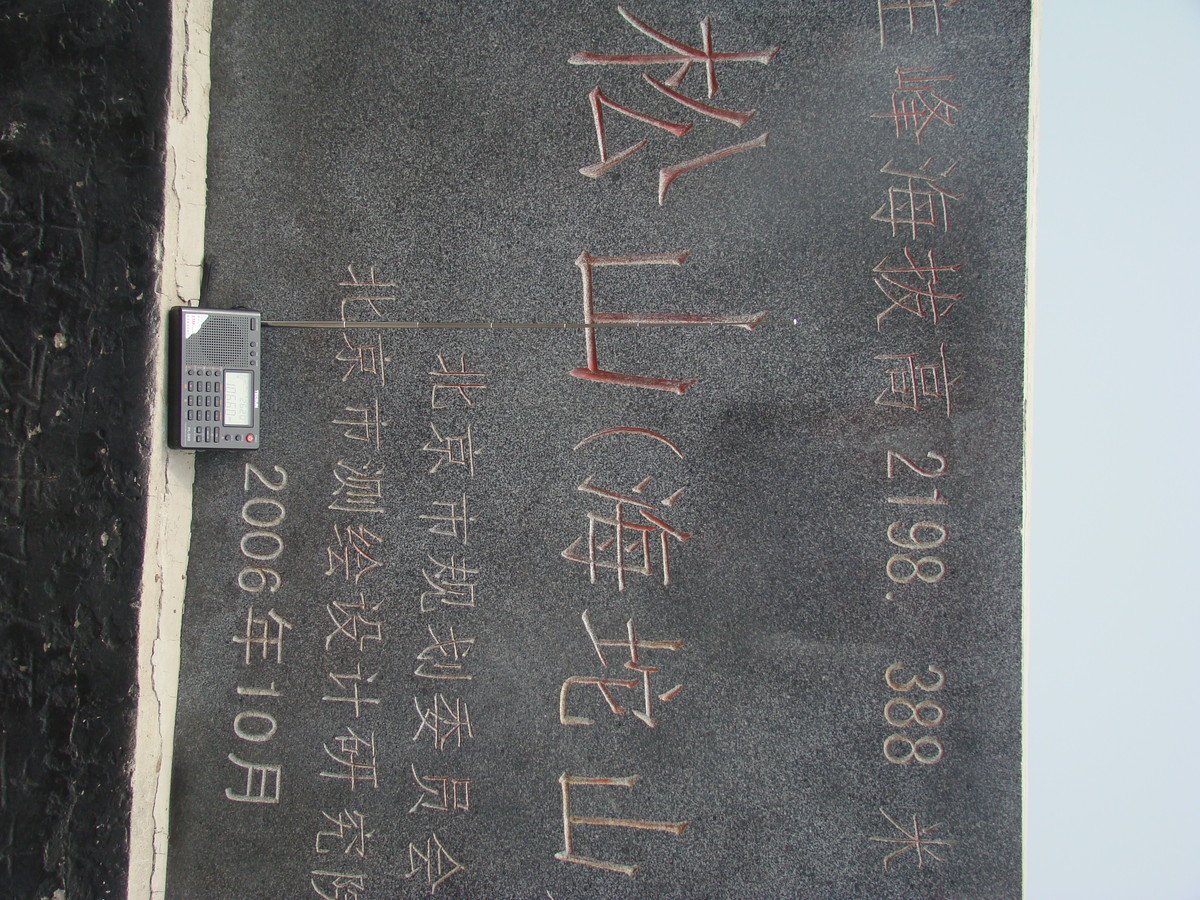 主峰海拔高2198.388米
松山(海坨山
北京市规划委员会
北京市测绘设计研究院
2006年10月